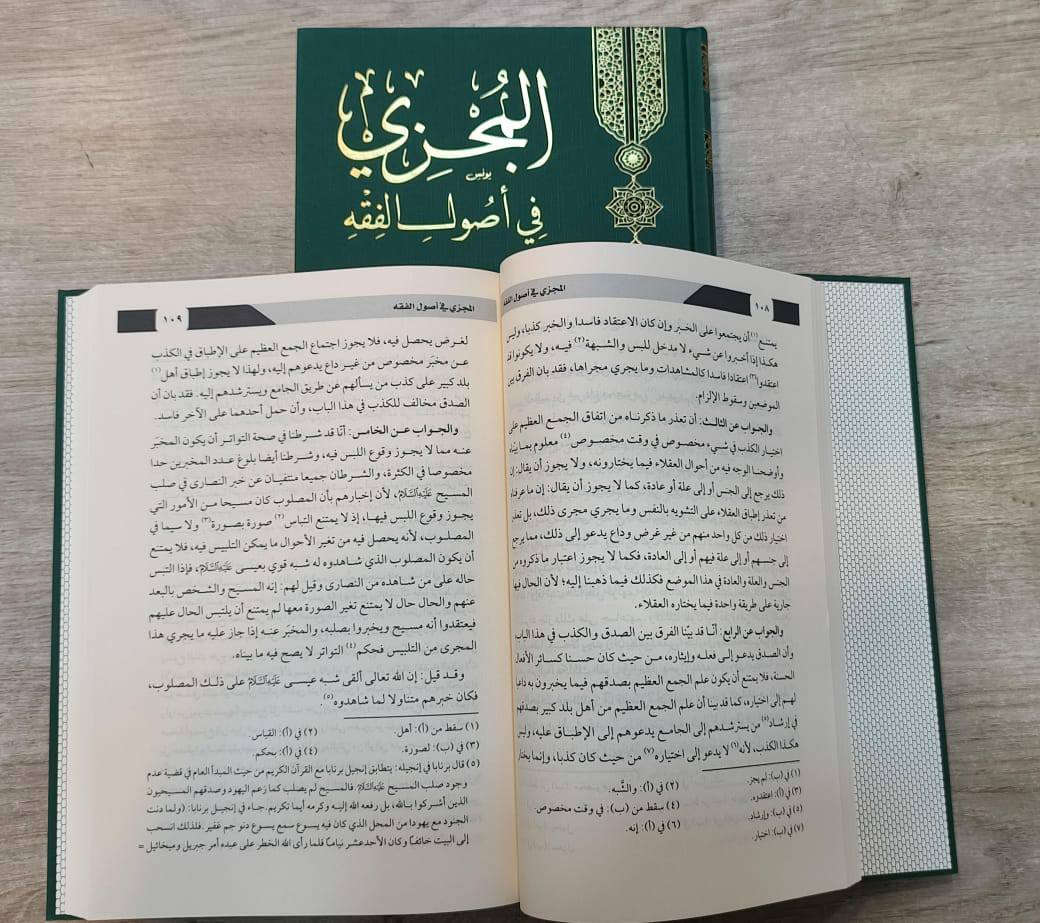 المُجْزِي
يونس
فِي أُصُولِ الفِقْهِ
المجزي في أصول الفقه
١٠٨
يمتنع(١) أن يجتمعوا على الخبر وإن كان الاعتقاد فاسدا والخبر كذبا، وليس
هكذا إذا أخبروا عن شيء لا مدخل للبس والشبهة(٢) فيه، ولا يكونوا قد
اعتقدوا(٣) اعتقادا فاسدا كالمشاهدات وما يجري مجراها، فقد بان الفرق بين
الموضعين وسقوط الإلزام.
والجواب عن الثالث: أن تعذر ما ذكرناه من اتفاق الجمع العظيم على
اختيار الكذب في شيء مخصوص في وقت مخصوص(٤) معلوم بما بيناه
وأوضحنا الوجه فيه من أحوال العقلاء فيما يختارونه، ولا يجوز أن يقال: إن
ذلك يرجع إلى الجنس أو إلى علة أو عادة، كما لا يجوز أن يقال: إن ما عرفناه
من تعذر إطباق العقلاء على التشويه بالنفس وما يجري مجرى ذلك، بل تعذر
اختيار ذلك من كل واحد منهم من غير غرض وداع يدعو إلى ذلك، مما يرجع
إلى جنسهم أو إلى علة فيهم أو إلى العادة، فكما لا يجوز اعتبار ما ذكروه من
الجنس والعلة والعادة في هذا الموضع فكذلك فيما ذهبنا إليه؛ لأن الحال فيها
جارية على طريقة واحدة فيما يختاره العقلاء.
والجواب عن الرابع: أنّا قد بيّنا الفرق بين الصدق والكذب في هذا الباب
وأن الصدق يدعو إلى فعله وإيثاره، من حيث كان حسنا كسائر الأفعال
الحسنة، فلا يمتنع أن يكون علم الجمع العظيم بصدقهم فيما يخبرون به داعيا
لهم إلى اختياره، كما قد بينا أن علم الجمع العظيم من أهل بلد كبير بصدقهم
في إرشاد(٥) من يسترشدهم إلى الجامع يدعوهم إلى الإطباق عليه، وليس
هكذا الكذب، لأنه(٦) لا يدعو إلى اختياره(٧) من حيث كان كذبا، وإنما يختار
(١) في (ب): لم يجز.
(٢) في (أ): والشَّبه.
(٣) في (أ): اعتقدوه.
(٤) سقط من (ب): في وقت مخصوص.
(٥) في (ب): وإرشاد.
(٦) في (أ): إنه.
(٧) في (ب): اختيار
المجزي في أصول الفقه
١٠٩
لغرض يحصل فيه، فلا يجوز اجتماع الجمع العظيم على الإطباق في الكذب
عن مخبَر مخصوص من غير داع يدعوهم إليه، ولهذا لا يجوز إطباق أهل(١)
بلد كبير على كذب من يسألهم عن طريق الجامع ويسترشدهم إليه. فقد بان أن
الصدق مخالف للكذب في هذا الباب، وأن حمل أحدهما على الآخر فاسد.
والجواب عن الخامس: أنّا قد شرطنا في صحة التواتر أن يكون المخبَر
عنه مما لا يجوز وقوع اللبس فيه، وشرطنا أيضا بلوغ عدد المخبرين حدا
مخصوصا في الكثرة، والشرطان جميعا منتفيان عن خبر النصارى في صلب
المسيح عَلَيْهِ السَّلَامُ، لأن إخبارهم بأن المصلوب كان مسيحا من الأمور التي
يجوز وقوع اللبس فيها، إذ لا يمتنع التباس(٢) صورة بصورة(٣) ولا سيما في
المصلوب، لأنه يحصل فيه من تغير الأحوال ما يمكن التلبيس فيه، فلا يمتنع
أن يكون المصلوب الذي شاهدوه له شبه قوي بعيسى عَلَيْهِ السَّلَامُ، فإذا التبس
حاله على من شاهده من النصارى وقيل لهم: إنه المسيح والشخص بالبعد
عنهم والحال حال لا يمتنع تغير الصورة معها لم يمتنع أن يلتبس الحال عليهم
فيعتقدوا أنه مسيح ويخبروا بصلبه، والمخبَر عنه إذا جاز عليه ما يجري هذا
المجرى من التلبيس فحكم(٤) التواتر لا يصح فيه ما بيناه.
وقد قيل: إن الله تعالى ألقى شبه عيسى عَلَيْهِ السَّلَامُ على ذلك المصلوب،
فكان خبرهم متناولا لما شاهدوه(٥).
(١) سقط من (أ): أهل.
(٢) في (أ): القياس.
(٣) في (ب): لصورة.
(٤) في (أ): بحكم.
(٥) قال برنابا في إنجيله: يتطابق إنجيل برنابا مع القرآن الكريم من حيث المبدأ العام في قضية عدم
وجود صلب المسيح عَلَيْهِ السَّلَامُ فالمسيح لم يصلب كما زعم اليهود وصدقهم المسيحيون
الذين أشركوا بالله، بل رفعه الله إليه وكرمه أيما تكريم. جاء في إنجيل برنابا: (ولما دنت
الجنود مع يهوذا من المحل الذي كان فيه يسوع سمع يسوع دنو جم غفير. فلذلك انسحب
إلى البيت خائفاً وكان الأحد عشر نياماً فلما رأى الله الخطر على عبده أمر جبريل وميخائيل =